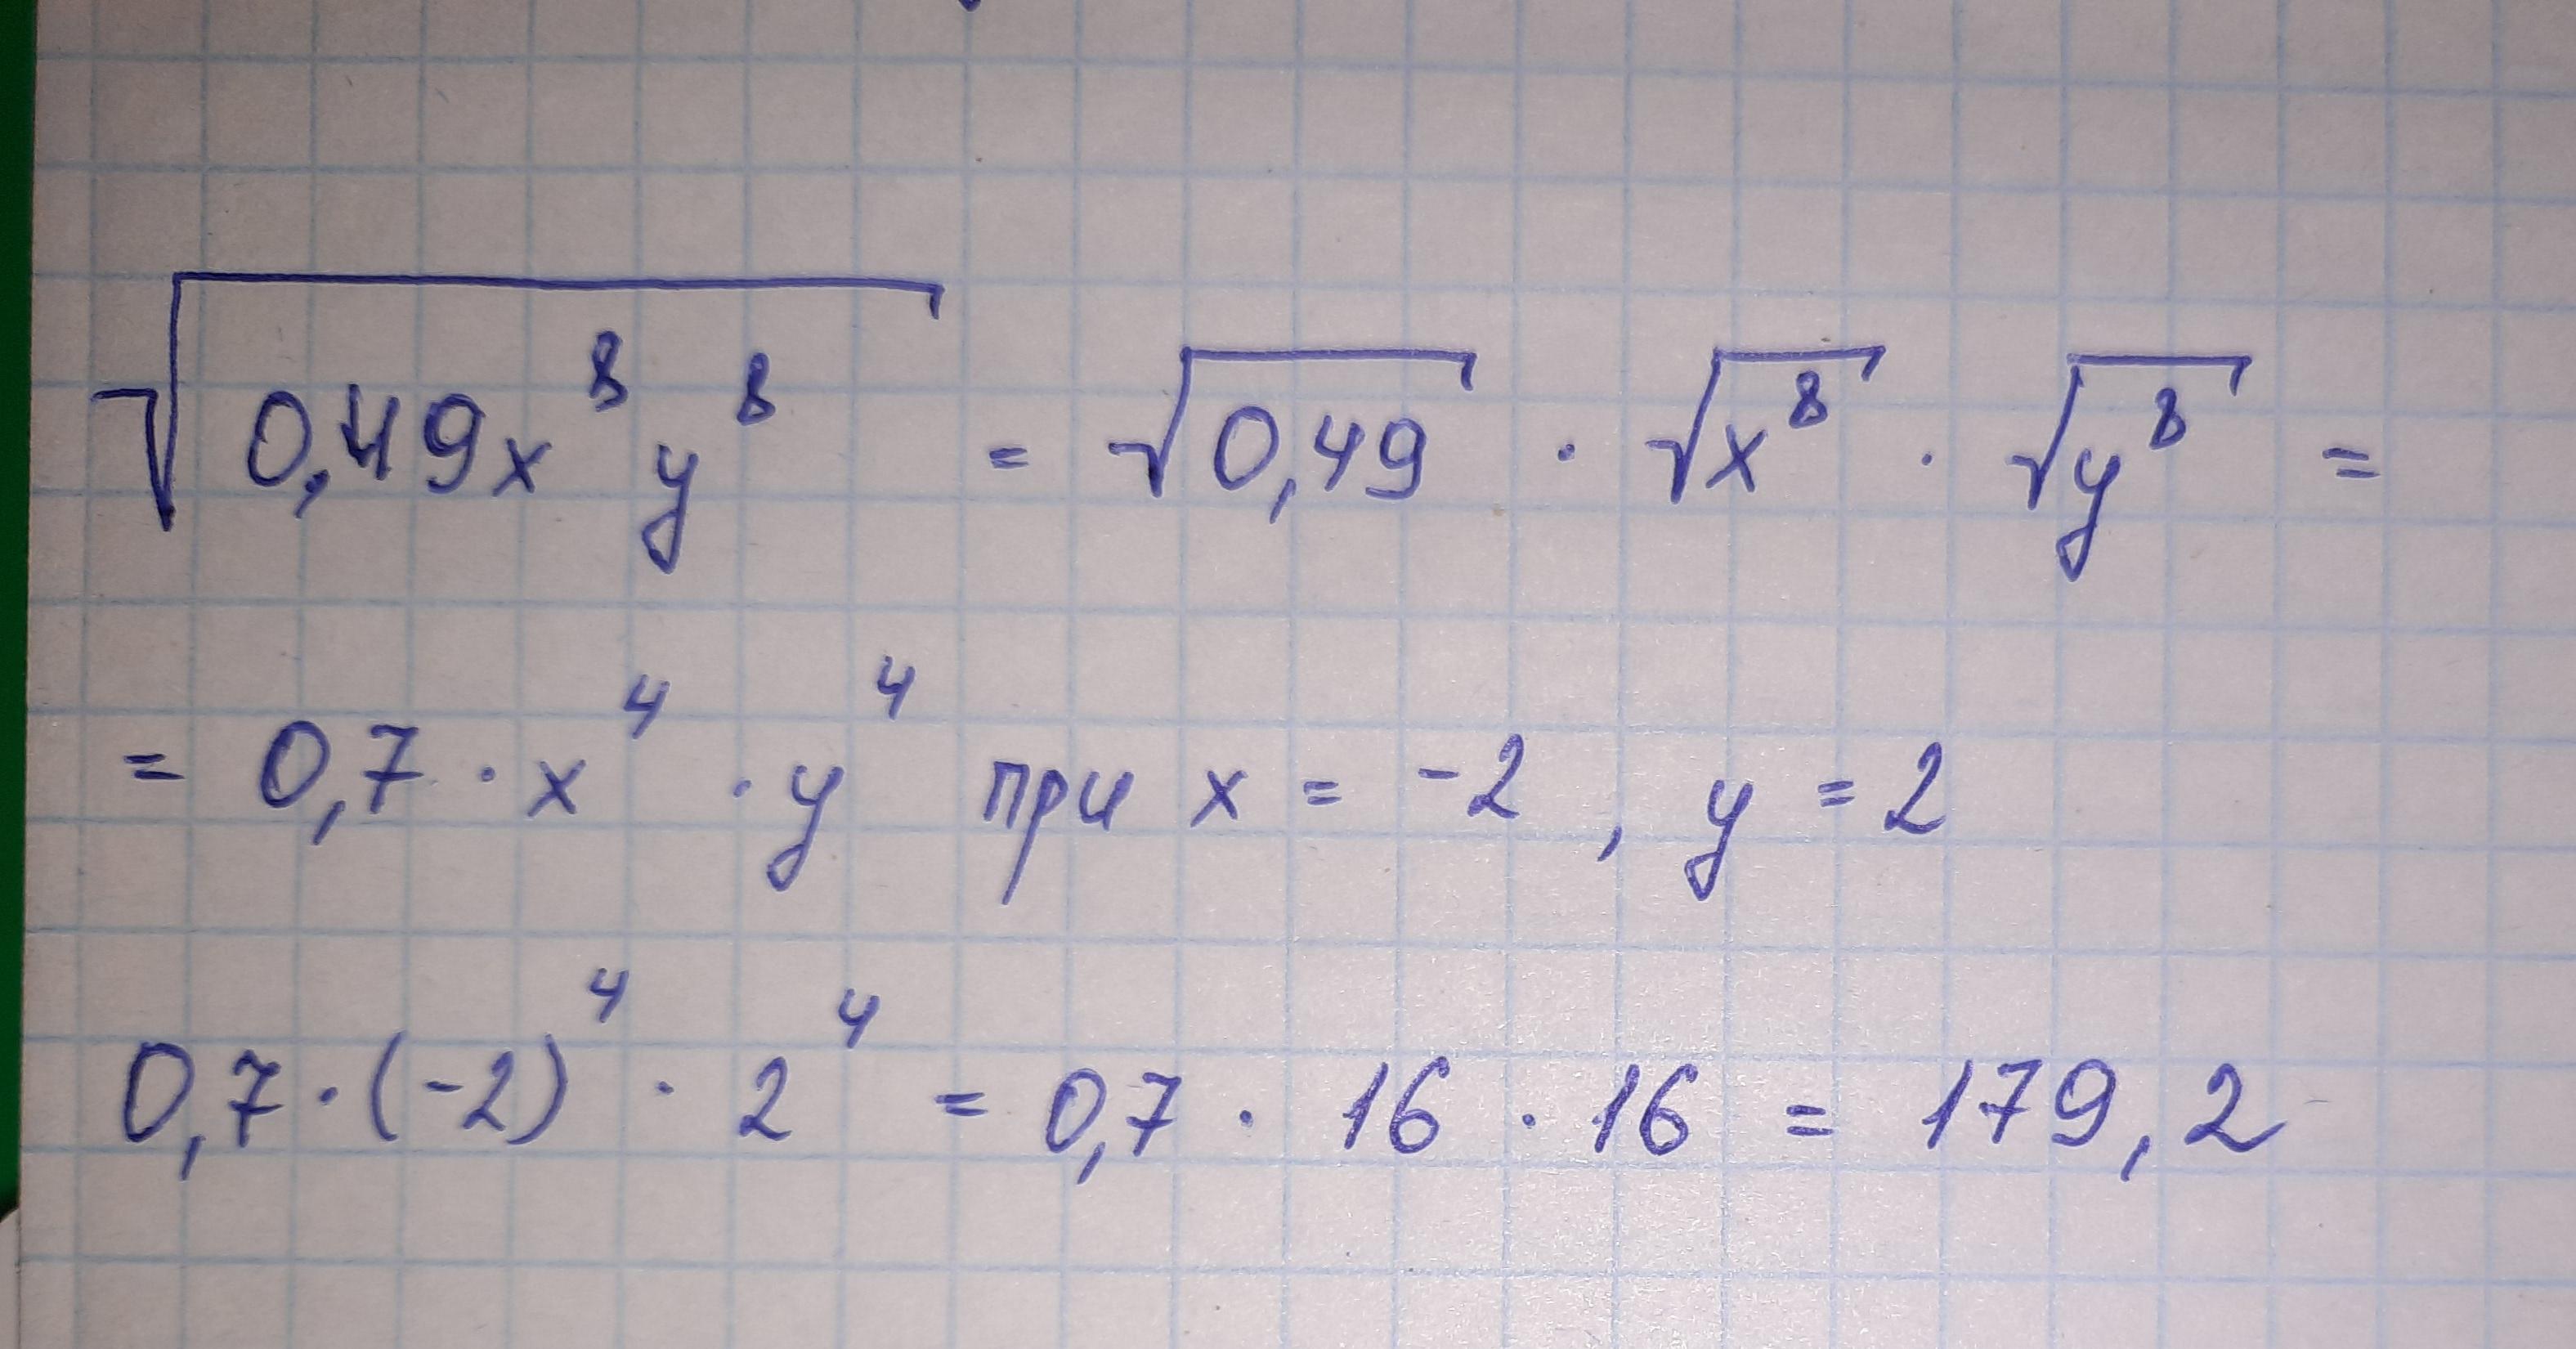 √(0,49x⁸y⁸) = √0,49 · √x⁸ · √y⁸ =
= 0,7 · x⁴ · y⁴ при x = -2, y = 2
0,7 · (-2)⁴ · 2⁴ = 0,7 · 16 · 16 = 179,2